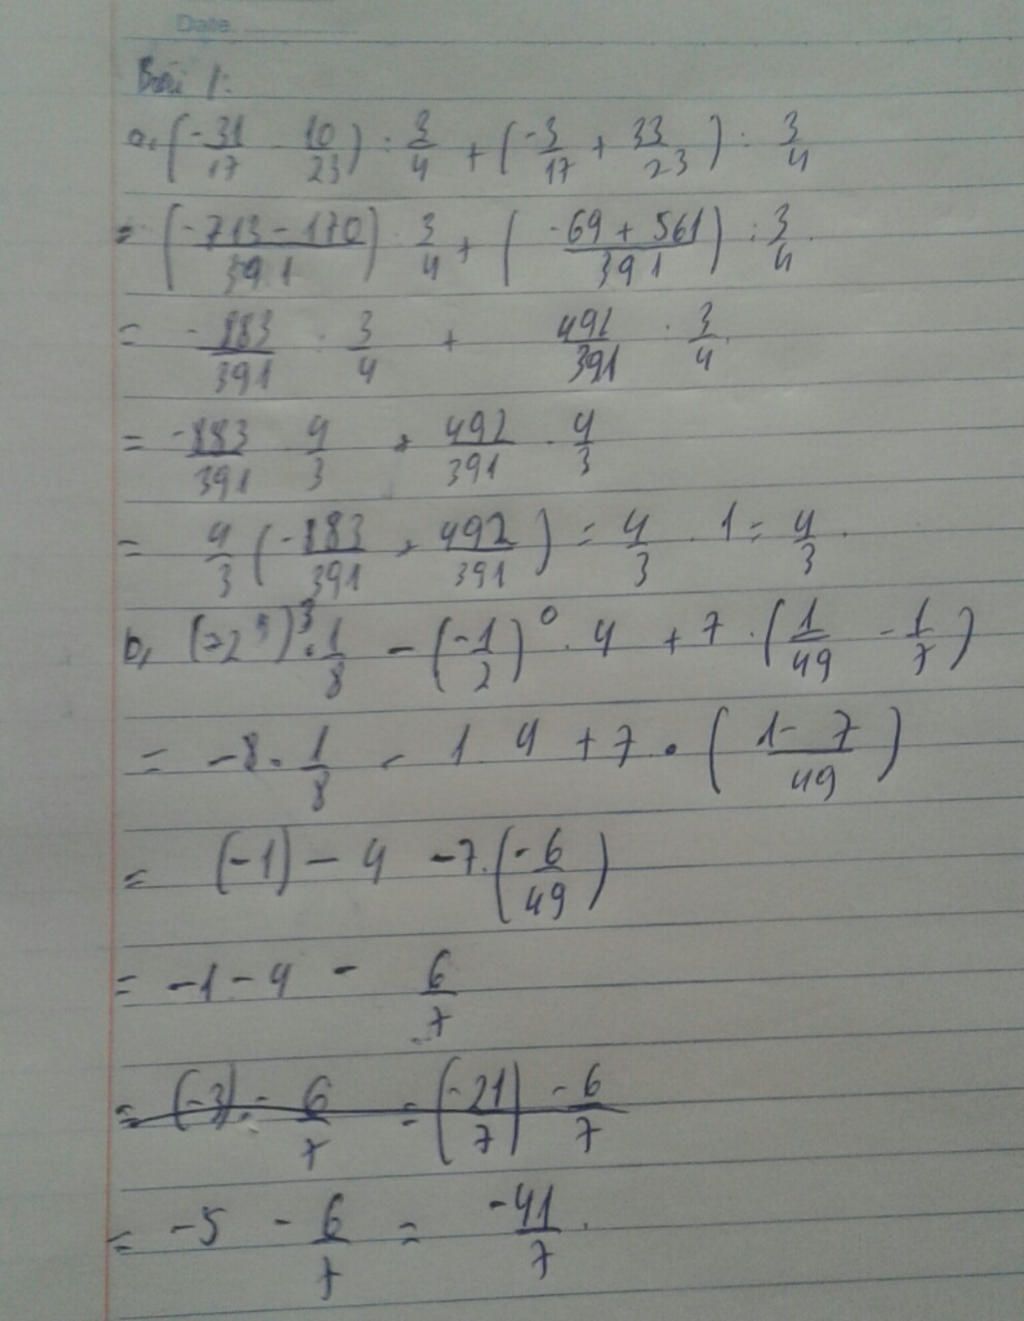 Date
Bài 1:
a, (-31/17 - 10/23) : 3/4 + (-3/17 + 33/23) : 3/4
= (-713 - 170 / 391) : 3/4 + (-69 + 561 / 391) : 3/4
= -883/391 : 3/4 + 492/391 : 3/4
= -883/391 . 4/3 + 492/391 . 4/3
= 4/3 (-883/391 + 492/391) = 4/3 . 1 = 4/3.
b, . 1/8 - (-1/2)^0 . 4 + 7 . (1/49 - 1/7)
= -8 . 1/8 - 1 4 + 7 . (1 - 7 / 49)
= (-1) - 4 -7. (-6/49)
= -1 - 4 - 6/7
= (-3) - 6/7 = (-21/7) - 6/7
= -5 - 6/7 = -41/7.